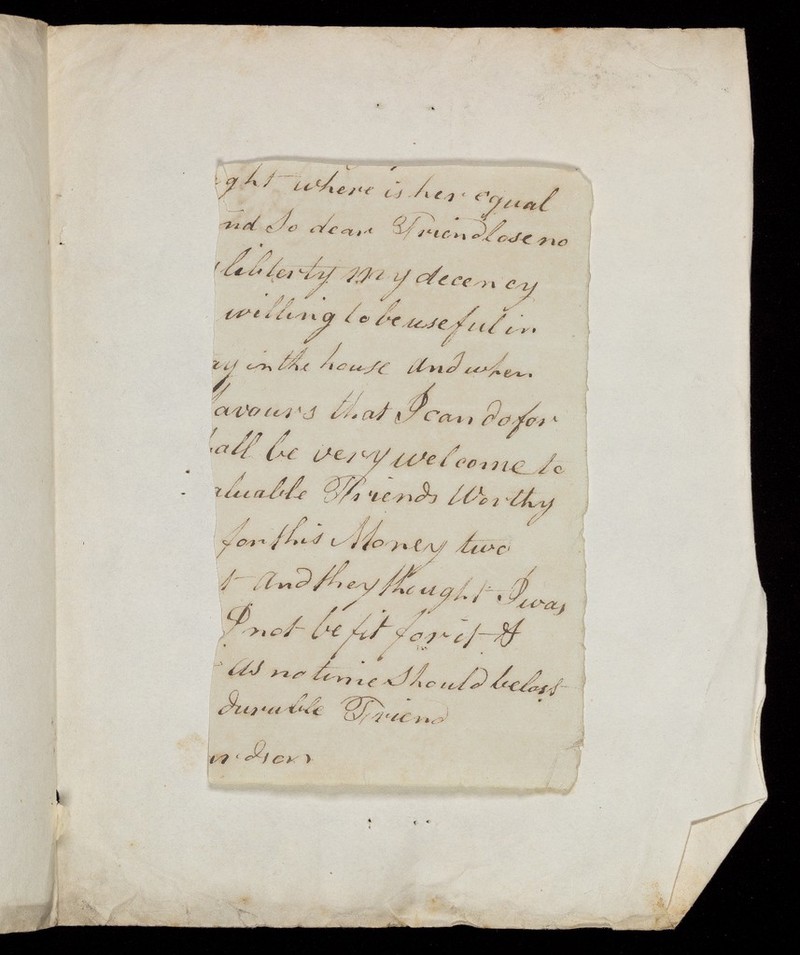 ght where is her equal
nd So dear Friend lose no
libterty my decency
willing to be useful in
ay in the house and when
favours that I can do for
all be very welcome to
aluable Friends Worthy
for this Money two
t and they thought I was
I not be fit for it &
as no time should be lost
durable Friend
rdson